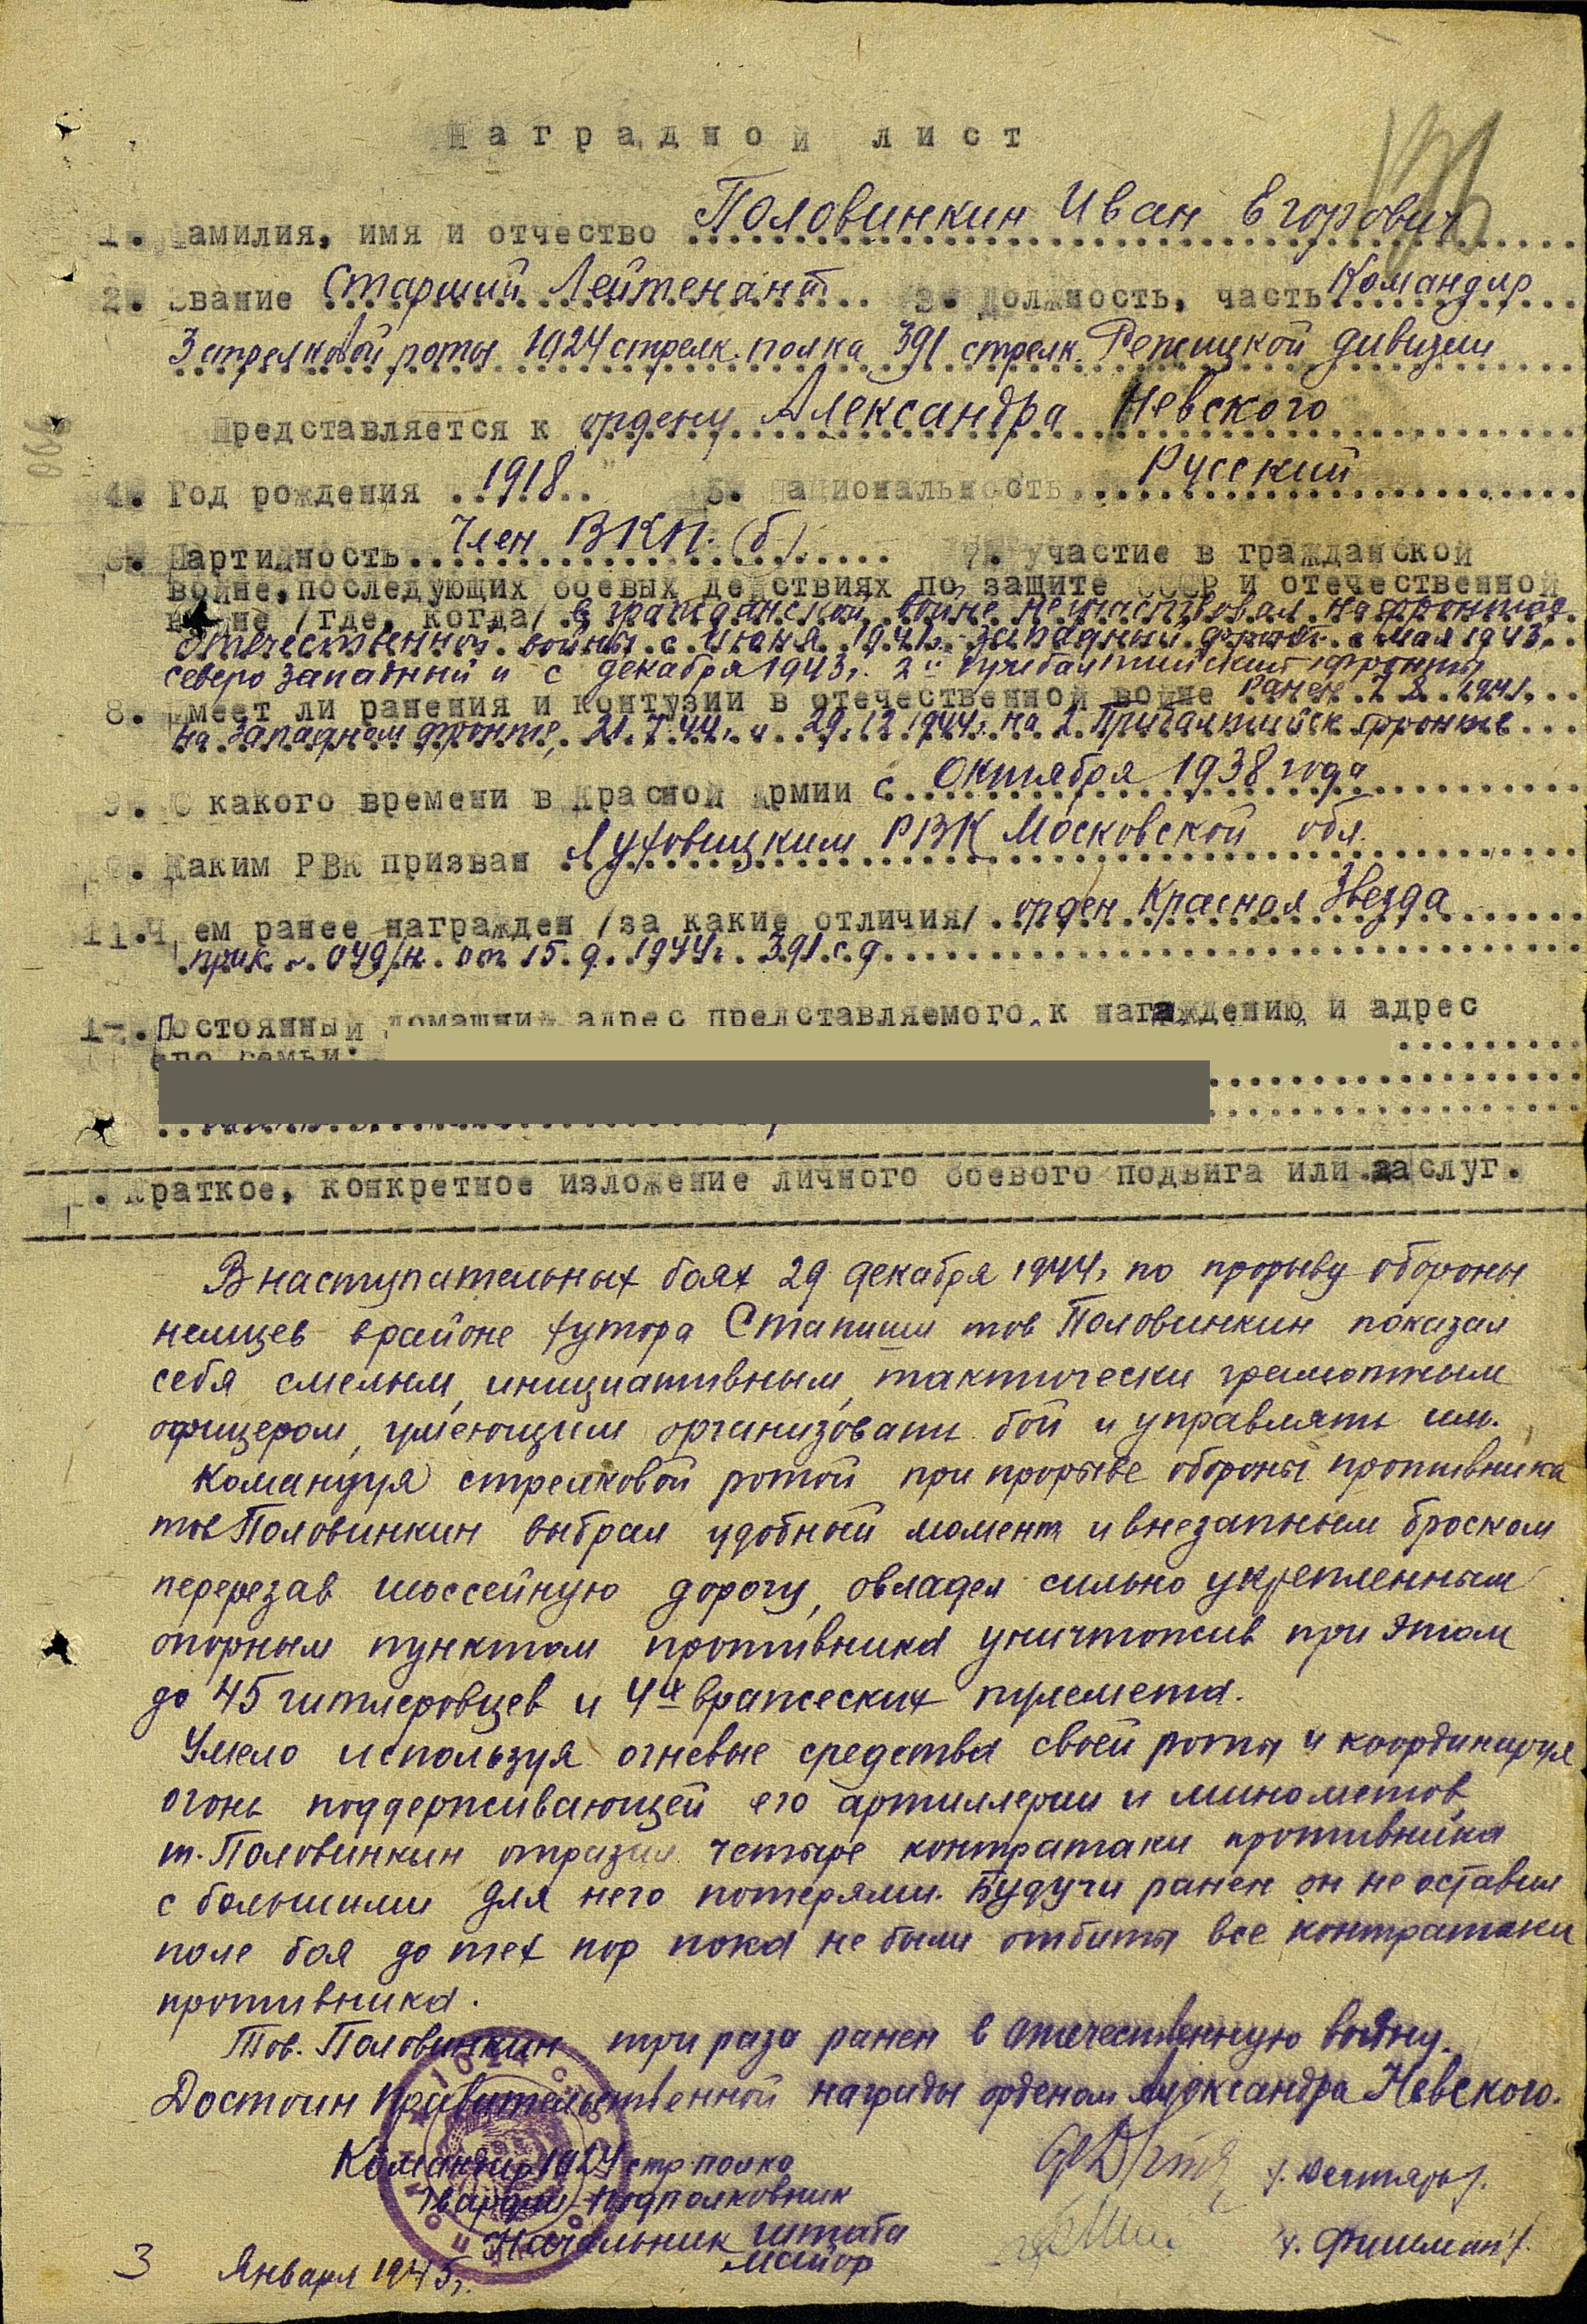 Наградной лист
1. Фамилия, имя и отчество Половинкин Иван Егорович
2. Звание Старший Лейтенант 3. Должность, часть Командир
3 стрелковой роты 1024 стрелк. полка 391 стрелк. Режицкой дивизии
Представляется к ордену Александра Невского
4. Год рождения 1918 5. Национальность Русский
6. Партийность Член ВКП.(б) 7. участие в гражданской
войне, последующих боевых действиях по защите СССР и отечественной
войне /где, когда/ в гражданской войне не участвовал. На фронтах
отечественной войны с июня 1941г. западный фронт. с мая 1943г.
северо западный и с декабря 1943г. 2й прибалтийский фронты
8. Имеет ли ранения и контузии в отечественной войне Ранен 7.8.1941г.
на Западном фронте, 21.7.44г. и 29.12.1944г. на 2 Прибалтийск. фронте
9. С какого времени в Красной Армии с Октября 1938 года
10. Каким РВК призван Луховицким РВК Московской обл.
11. Чем ранее награжден /за какие отличия/ орден Красная Звезда
прик. № 049/н. от 15.9.1944г. 391 с.д.
Постоянный домашний адрес представляемого к награждению и адрес
его семьи:
1. Краткое, конкретное изложение личного боевого подвига или заслуг.
В наступательных боях 29 декабря 1944г. по прорыву обороны
немцев в районе хутора Стапиши тов Половинкин показал
себя смелым, инициативным, тактически грамотным
офицером, умеющим организовать бой и управлять им.
Командуя стрелковой ротой при прорыве обороны противника
тов Половинкин выбрал удобный момент и внезапным броском
перерезав шоссейную дорогу, овладел сильно укрепленным
опорным пунктом противника уничтожив при этом
до 45 гитлеровцев и 4х вражеских пулемета.
Умело используя огневые средства своей роты и координируя
огонь поддерживающей его артиллерии и минометов,
т. Половинкин отразил четыре контратаки противника
с большими для него потерями. Будучи ранен он не оставил
поле боя до тех пор пока не были отбиты все контратаки
противника.
Тов. Половинкин три раза ранен в отечественную войну.
Достоин Правительственной награды орденом Александра Невского.
Командир 1024 стр полка
Гвардии-Подполковник /. Дегтярь/.
Начальник штаба
майор /. Фишман/.
3 Января 1945г.